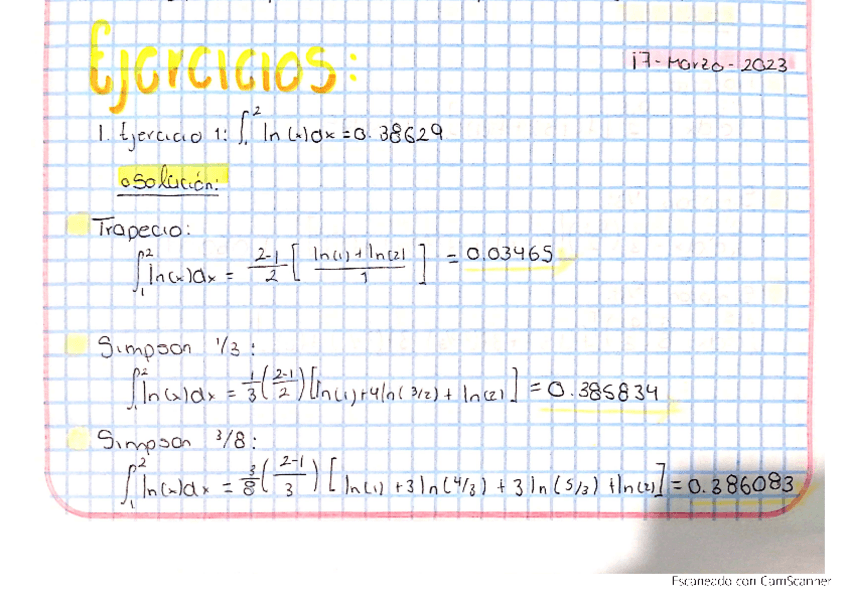 Ejercicios:
17-Marzo-2023
1. Ejercicio 1: ∫₁² ln(x)dx = 0.38629
Solución:
Trapecio:
∫₁² ln(x)dx = 2-1/2 [ ln(1)+ln(2)/1 ] = 0.03465
Simpson 1/3:
∫₁² ln(x)dx = 1/3 (2-1/2) [ln(1)+4ln(3/2)+ln(2)] = 0.385834
Simpson 3/8:
∫₁² ln(x)dx = 3/8 (2-1/3) [ln(1)+3ln(4/3)+3ln(5/3)+ln(2)] = 0.386083
Escaneado con CamScanner